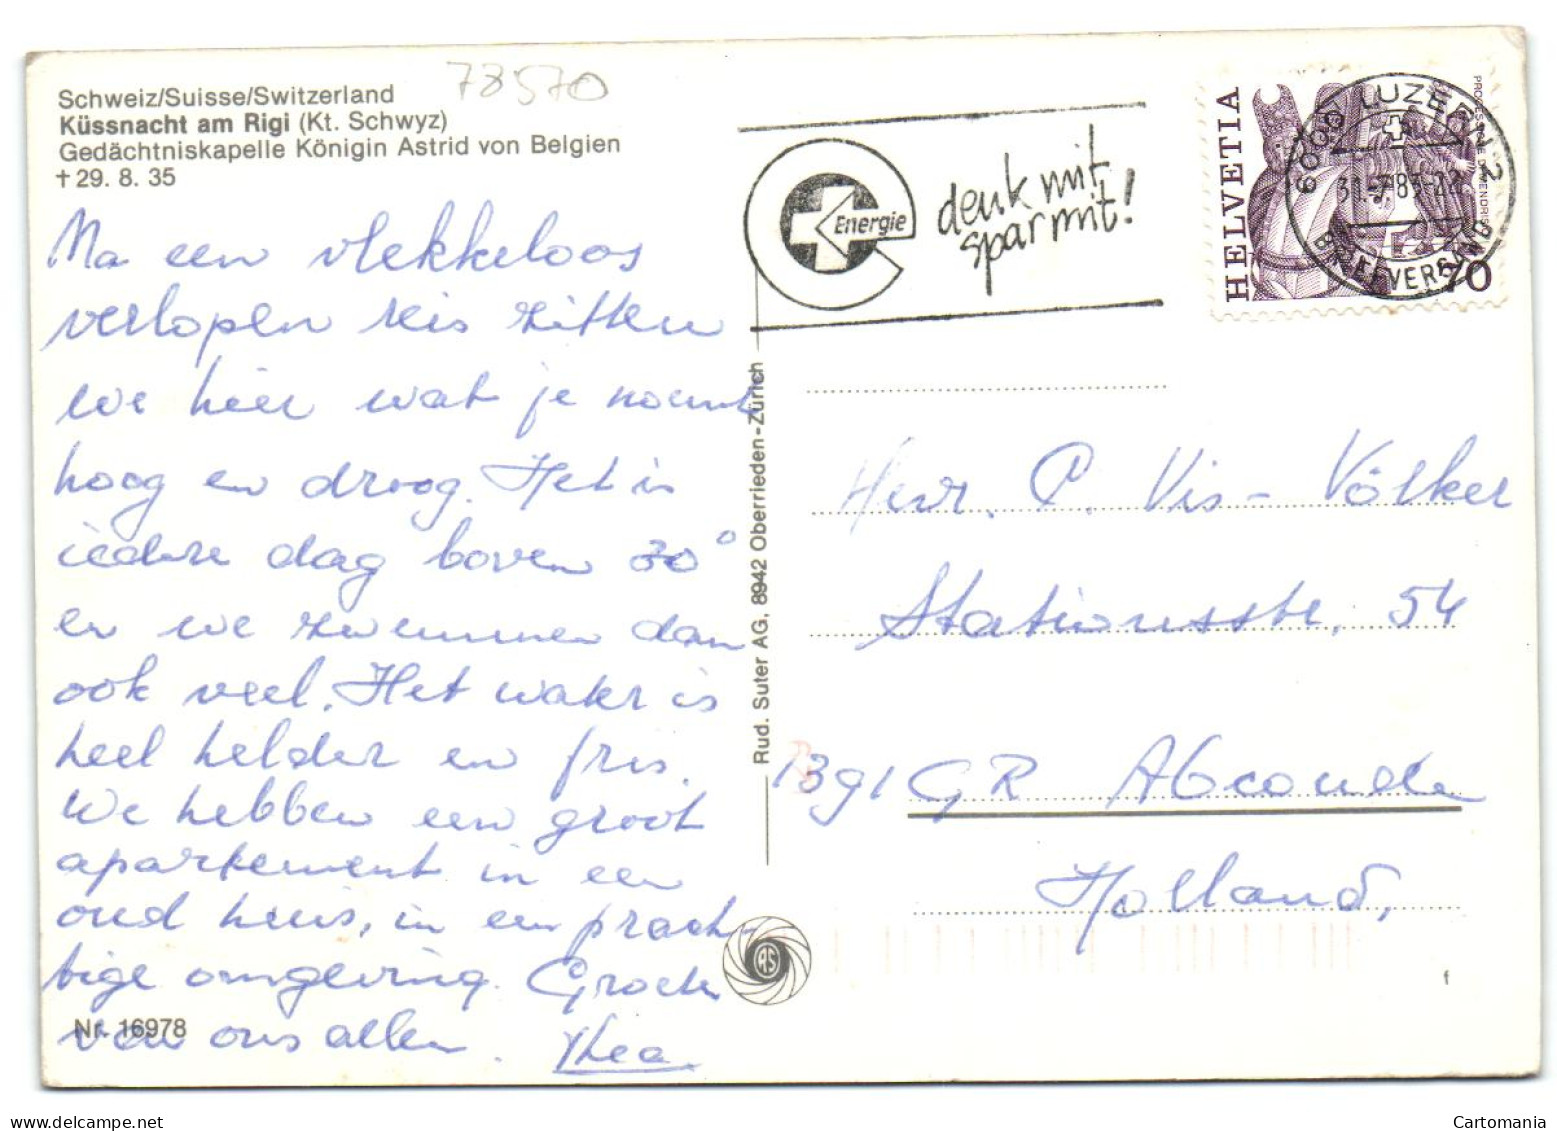 78570
Schweiz/Suisse/Switzerland
Küssnacht am Rigi (Kt. Schwyz)
Gedächtniskapelle Königin Astrid von Belgien
† 29. 8. 35
Na een vlekkeloos
verlopen reis zitten
we hier wat je noemt
hoog en droog. Het is
iedere dag boven 30°
en we zwemmen dan
ook veel. Het water is
heel helder en fris.
We hebben een groot
apartement in een
oud huis, in een prach-
tige omgeving. Groeten
van ons allen. Thea.
Nr. 16978
Rud. Suter AG, 8942 Oberrieden-Zürich
AS
Energie
denk mit
spar mit!
HELVETIA
70
6000 LUZERN 2
31.-7.83-22
BRIEFVERSAND
Herr. P. Vis-Völker
Stationsstr. 54
1391 GR Abcoude
Holland.
f
Cartomania